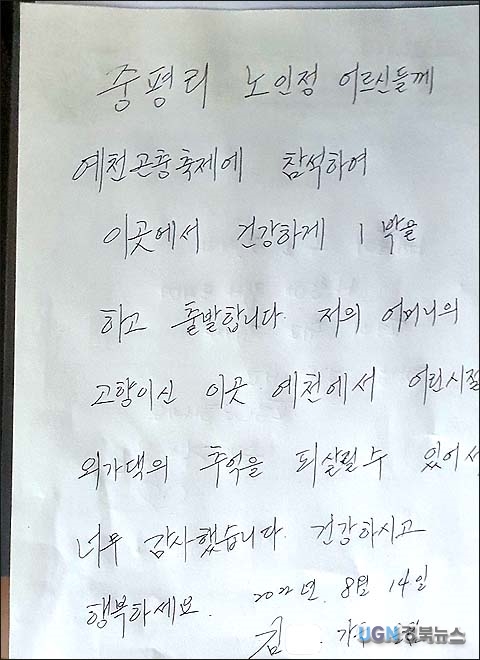 중평리 노인정 어르신들께
예천곤충축제에 참석하여
이곳에서 건강하게 1박을
하고 출발합니다. 저의 어머니의
고향이신 이곳 예천에서 어린시절
외가댁의 추억을 되살릴수 있어서
너무 감사했습니다. 건강하시고
행복하세요. 2022년. 8월 14일
김 . 가
UGN경북뉴스